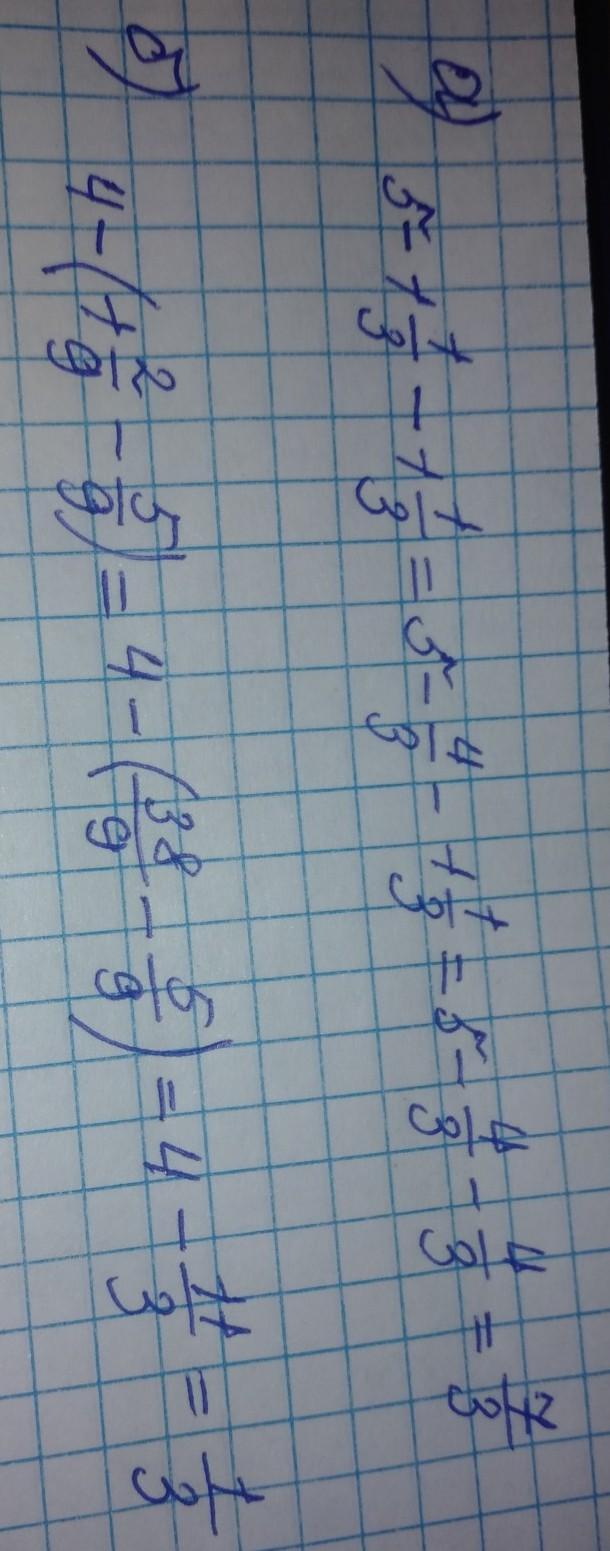 а) 5 - 1 1/3 - 1 1/3 = 5 - 4/3 - 1 1/3 = 5 - 4/3 - 4/3 = 7/3
б) 4 - (1 2/9 - 5/9) = 4 - (38/9 - 5/9) = 4 - 11/3 = 1/3